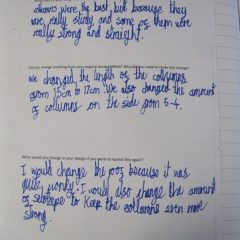 shows were the best, but because they
were really sturdy and some of them were
really strong and straight.
Did you change anything from your original design/ideas? Why did you need to make the change?
we changed the length of the collums
from 15cm to 17cm. We also changed the amount
of columns on the side from 5-4.
What would you change in your design if you were to repeat this again?
I would change the roof because it was
quite wonky. I would also change the amount
of selotape to keep the collumns even more
strong.